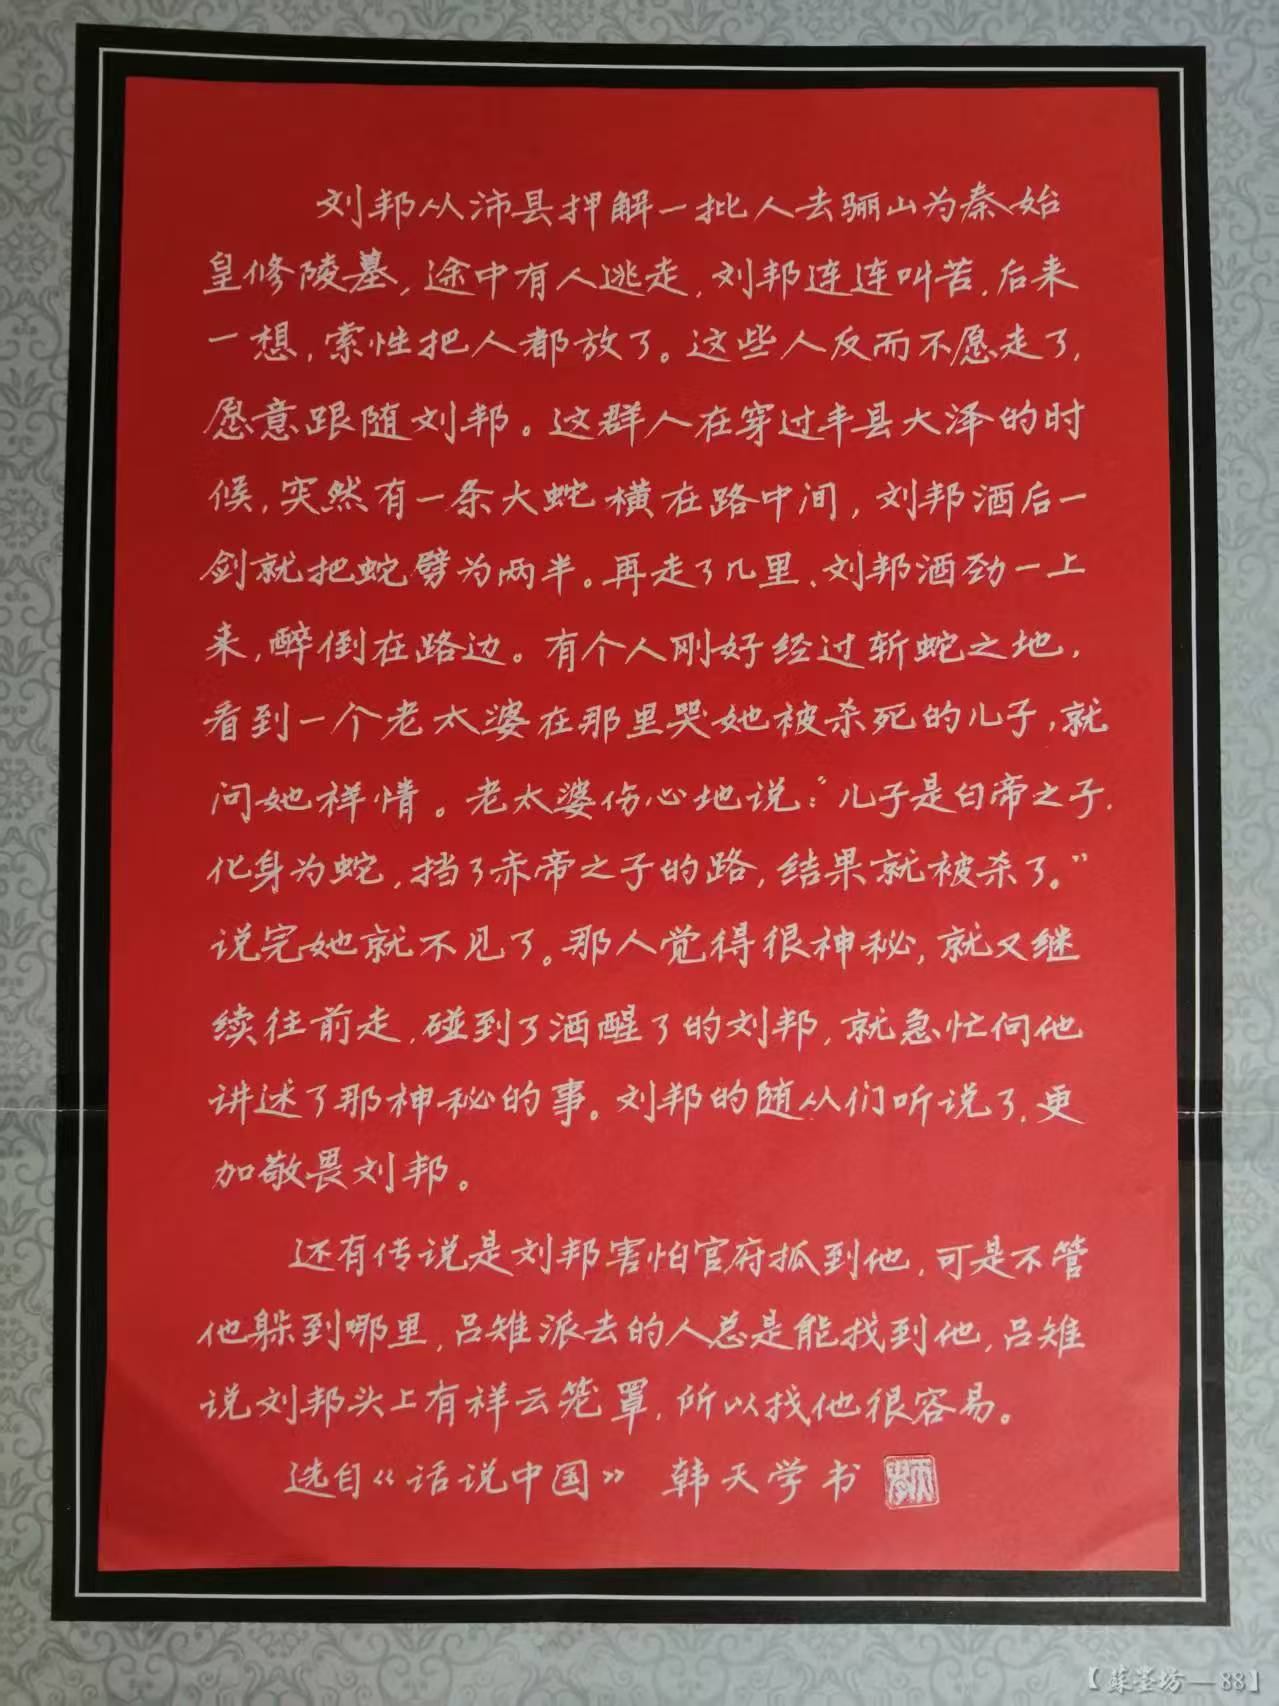 刘邦从沛县押解一批人去骊山为秦始
皇修陵墓,途中有人逃走,刘邦连连叫苦,后来
一想,索性把人都放了。这些人反而不愿走了,
愿意跟随刘邦。这群人在穿过丰县大泽的时
候,突然有一条大蛇横在路中间,刘邦酒后一
剑就把蛇劈为两半。再走了几里、刘邦酒劲一上
来,醉倒在路边。有个人刚好经过斩蛇之地,
看到一个老太婆在那里哭她被杀死的儿子,就
问她样情。老太婆伤心地说:“儿子是白帝之子,
化身为蛇,挡了赤帝之子的路,结果就被杀了。”
说完她就不见了。那人觉得很神秘,就又继
续往前走,碰到了酒醒了的刘邦,就急忙向他
讲述了那神秘的事。刘邦的随从们听说了,更
加敬畏刘邦。
还有传说是刘邦害怕官府抓到他,可是不管
他躲到哪里,吕雉派去的人总是能找到他,吕雉
说刘邦头上有祥云笼罩,所以找他很容易。
选自《话说中国》 韩天学书
【蘇荃坊—88】